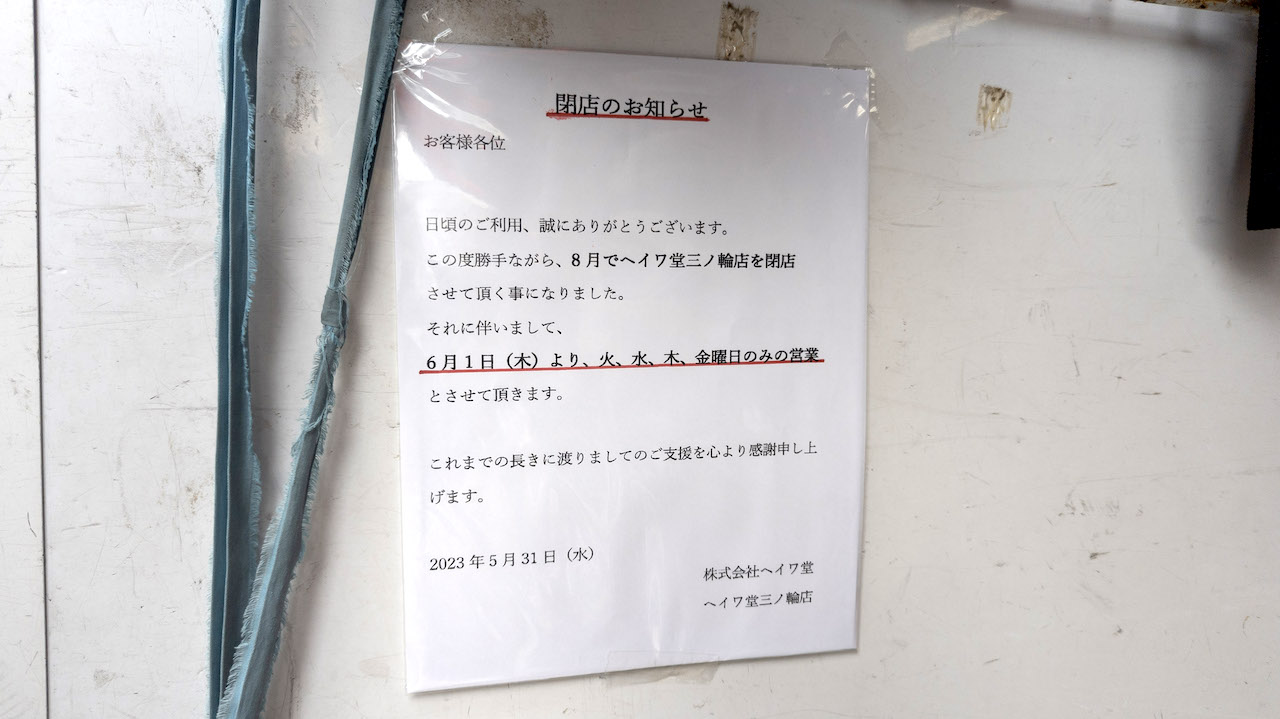 閉店のお知らせ
お客様各位
日頃のご利用、誠にありがとうございます。
この度勝手ながら、８月でヘイワ堂三ノ輪店を閉店
させて頂く事になりました。
それに伴いまして、
６月１日（木）より、火、水、木、金曜日のみの営業
とさせて頂きます。
これまでの長きに渡りましてのご支援を心より感謝申し上
げます。
2023 年 5 月 31 日（水）
株式会社ヘイワ堂
ヘイワ堂三ノ輪店